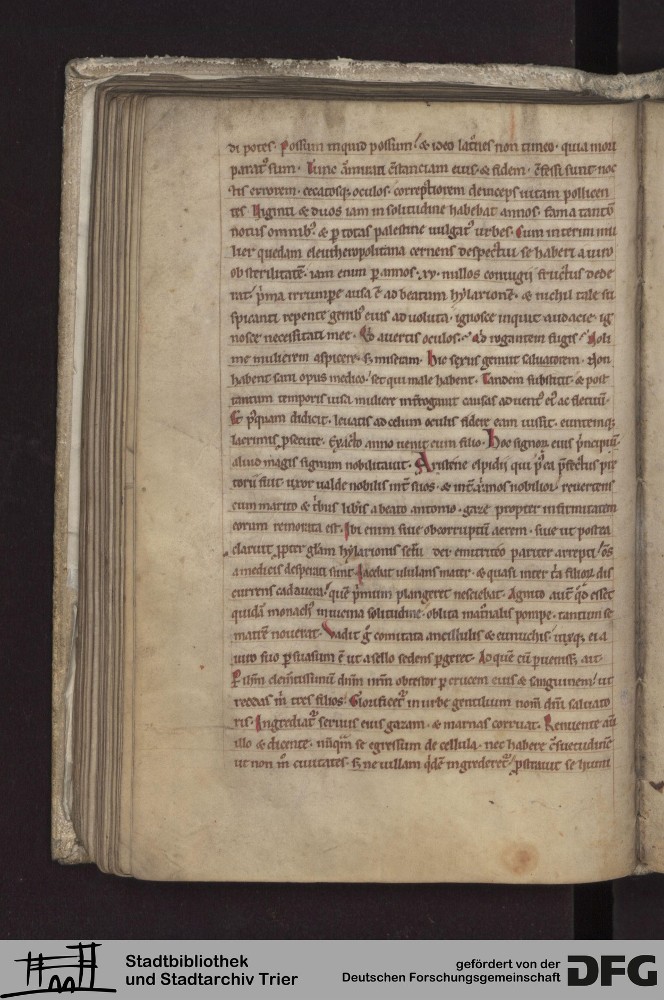 di potes. Possum inquid possum. & ideo latrones non timeo. quia mori
paratus sum. Tunc ammirati constanciam eius & fidem. confessi sunt noc
tis errorem. cecatosque oculos. correptiorem deinceps uitam pollicen
tes. Uiginti & duos iam in solitudine habebat annos. fama tantum
notus omnibus. & per totas palestine uulgatus urbes. Cum interim mu
lier quedam eleutheropolitana cernens despectui se haberi a uiro
ob sterilitatem. iam enim per annos .xv. nullos coniugii fructus dede
rat. prima irrumpere ausa est ad beatum hylarionem. & nichil tale su
spicanti repente genibus eius aduoluta. ignosce inquit audacie. ig
nosce necessitati mee. Quid auertis oculos. Quid rogantem fugis. Noli
me mulierem aspicere. sed miseram. Hic sexus genuit saluatorem. Non
habent sani opus medico. set qui male habent. Tandem substitit. & post
tantum temporis uisa muliere interrogauit causas aduentus eius ac fletuum.
Et postquam didicit. leuatis ad celum oculis fidere eam iussit. euntemque
lacrimis prosecutus. Exacto anno uenit cum filio. Hoc signorum eius principium
aliud magis signum nobilitauit. Aristene elpidii qui postea prefectus pre
torii fuit uxor ualde nobilis inter suos. & inter christianos nobilior. reuertens
cum marito & tribus liberis a beato antonio. gaze propter infirmitatem
eorum remorata est. Ibi enim siue ob corruptum aerem. siue ut postea
claruit propter gloriam hylarionis serui dei emitriteo pariter arrepti. omnes
a medicis desperati sunt. Iacebat ululans mater. & quasi inter tria filiorum dis
currens cadauera. quem primum plangeret nesciebat. Agnito autem quod esset
quidam monachus in uicina solitudine. oblita matronalis pompe. tantum se
matrem nouerat. Vadit ergo comitata ancillulis & eunuchis. uixque ei a
uiro suo persuasum est ut asello sedens pergeret. Ad quem cum peruenisset ait.
Per ihesum clementissimum dominum nostrum obtestor per crucem eius & sanguinem. ut
reddas michi tres filios. Glorificetur in urbe gentilium nomen domini saluato
ris. Ingrediatur seruus eius gazam. & marnas corruat. Renuente autem
illo & dicente. nunquam se egressum de cellula. nec habere consuetudinem
ut non modo ciuitates. sed ne uillam quidem ingrederetur. prostrauit se humi
Stadtbibliothek
und Stadtarchiv Trier
gefördert von der
Deutschen Forschungsgemeinschaft
DFG